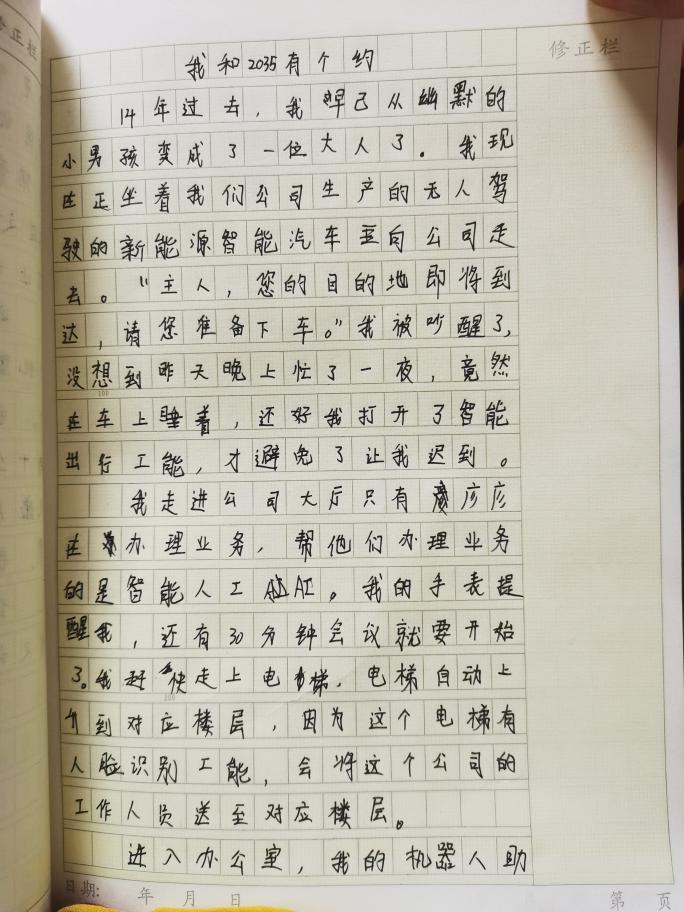 修正栏
我和2035有个约
14年过去，我早已从幽默的
小男孩变成了一位大人了。我现
在正坐着我们公司生产的无人驾
驶的新能源智能汽车至向公司走
去。“主人，您的目的地即将到
达，请您准备下车。”我被吵醒了，
没想到昨天晚上忙了一夜，竟然
在车上睡着，还好我打开了智能
出行工能，才避免了让我迟到。
我走进公司大厅只有彦彦
在办理业务，帮他们办理业务
的是智能人工AI。我的手表提
醒我，还有30分钟会议就要开始
了。我赶快走上电梯，电梯自动上
升到对应楼层，因为这个电梯有
人脸识别工能，会将这个公司的
工作人员送至对应楼层。
进入办公室，我的机器人助
日期: 年 月 日
第 页